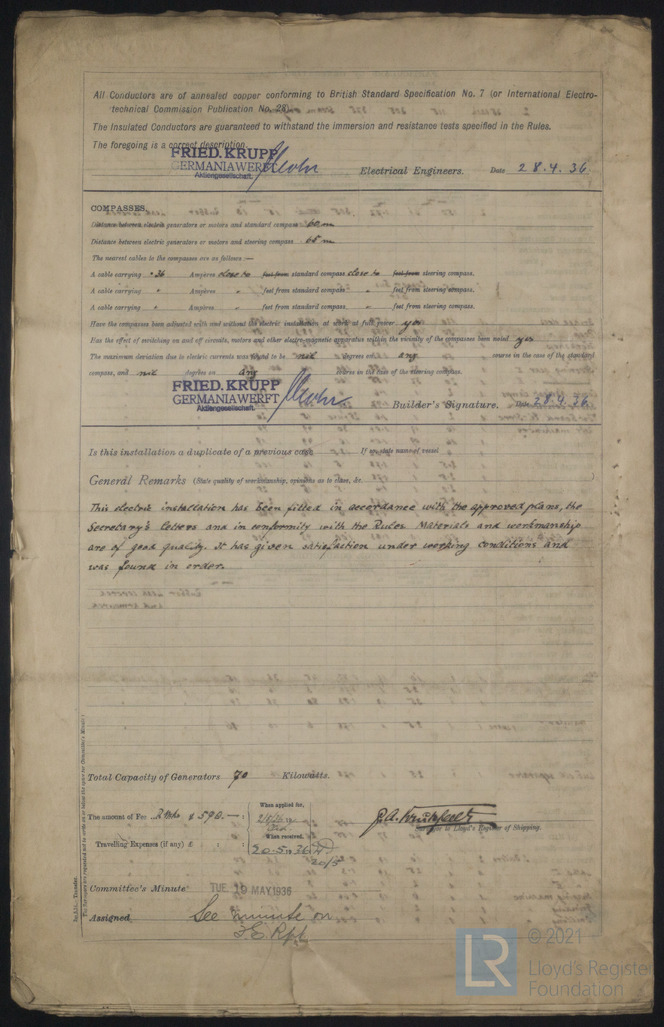 All Conductors are of annealed copper conforming to British Standard Specification No. 7 (or International Electro-
technical Commission Publication No. 28).
The Insulated Conductors are guaranteed to withstand the immersion and resistance tests specified in the Rules.
The foregoing is a correct description.
FRIED. KRUPP
GERMANIAWERFT
Aktiengesellschaft.
Electrical Engineers. Date 28.4.36.
COMPASSES.
Distance between electric generators or motors and standard compass 60 m
Distance between electric generators or motors and steering compass 65 m
The nearest cables to the compasses are as follows:—
A cable carrying ·36 Ampères close to feet from standard compass close to feet from steering compass.
A cable carrying " Ampères " feet from standard compass " feet from steering compass.
A cable carrying " Ampères " feet from standard compass " feet from steering compass.
Have the compasses been adjusted with and without the electric installation at work at full power yes
Has the effect of switching on and off circuits, motors and other electro-magnetic apparatus within the vicinity of the compasses been noted yes
The maximum deviation due to electric currents was found to be nil degrees on any course in the case of the standard
compass, and nil degrees on any course in the case of the steering compass.
FRIED. KRUPP
GERMANIAWERFT
Aktiengesellschaft.
Builder's Signature. Date 28.4.36
Is this installation a duplicate of a previous case If so, state name of vessel
General Remarks (State quality of workmanship, opinions as to class, &c.
This electric installation has been fitted in accordance with the approved plans, the
Secretary's letters and in conformity with the Rules Materials and workmanship
are of good quality. It has given satisfaction under working conditions and
was found in order.
Total Capacity of Generators 70 Kilowatts.
The amount of Fee
When applied for,
When received,
Travelling Expenses (if any) £ : : 20.5.1936
20/5
Surveyor to Lloyd's Register of Shipping.
Committee's Minute TUE. 19 MAY 1936
Assigned See minute on
F.E. Rpt.
© 2021
Lloyd's Register
Foundation